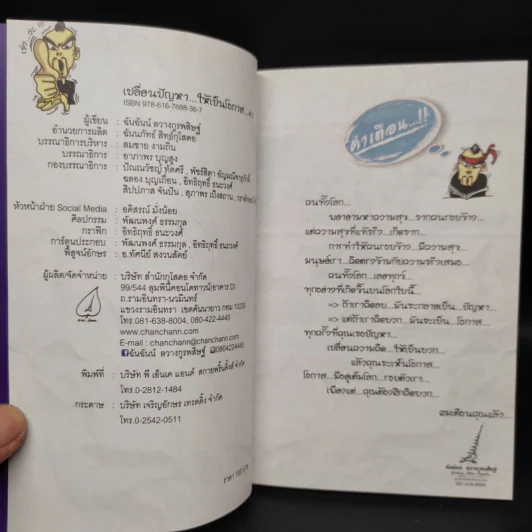 เช้ว...ว้ะ !!!
เปลี่ยนปัญหา...ให้เป็นโอกาส...
ISBN 978-616-7688-36-7
ผู้เขียน : ฉันฉันน์ ลวางกูรพสิษฐ์
อำนวยการผลิต : ฉันนภัทธ์ สิทธ์กุโสดอ
บรรณาธิการบริหาร : สมชาย งามถิ่น
บรรณาธิการ : อาภาพร บุญสูง
กองบรรณาธิการ : ปัณณวิชญ์ ทัดศรี , พัชร์สิตา อัญมณีดารุภักดิ์
ฉลอง บุญเถื่อน , อิทธิฤทธิ์ ธนะวงศ์
สิปปภาส จันปัน , สุภาพร เป็งสถาน ,
หัวหน้าฝ่าย Social Media : อดิสรณ์ มั่งน้อย
ศิลปกรรม : พัฒนพงศ์ ธรรมกุล
กราฟิก : อิทธิฤทธิ์ ธนะวงศ์
การ์ตูนประกอบ : พัฒนพงศ์ ธรรมกุล , อิทธิฤทธิ์ ธนะวงศ์
พิสูจน์อักษร : อ.ทัศนีย์ สงวนสัตย์
ผู้ผลิต/จัดจำหน่าย : บริษัท สำนักกุโสดอ จำกัด
99/544 ลุมพินีคอนโดทาวน์(อาคาร D)
ถ.รามอินทรา-นวมินทร์
แขวงรามอินทรา เขตคันนายาว กทม 10230
โทร.081-638-8004, 080-422-4445
www.chanchann.com
E-mail : chanchann@chanchann.com
ฉันฉันน์ ลวางกูรพสิษฐ์ 0804224445
พิมพ์ที่ : บริษัท พี เอ็นเค แอนด์ สกายพริ้นติ้งส์ จำกัด
โทร.0-2812-1484
กระดาษ : บริษัท เจริญอักษร เทรดดิ้ง จำกัด
โทร.0-2542-0511
ราคา บาท
คำเตือน...!!
คนทั้งโลก...
พยายามหาความสุข... จากคนรอบข้าง...
แต่ความสุขที่แท้จริง...เกิดจาก...
การทำให้คนรอบข้าง...มีความสุข...
มนุษย์เรา...คิดตรงข้ามกับความจริงเสมอ...
คนทั้งโลก...เลยทุกข์...
ทุกอย่างที่เกิดขึ้นบนโลกใบนี้...
=> ถ้าเราคิดลบ...มันจะกลายเป็น...ปัญหา...
=> แต่ถ้าเราคิดบวก...มันจะเป็น โอกาส...
ทุกครั้งที่คุณเจอปัญหา...
เปลี่ยนความคิด...ให้เป็นบวก...
แล้วคุณจะเห็นโอกาส...
โอกาส...มีอยู่เต็มโลก...รอบตัวเรา...
เพียงแต่...คุณต้องฝึกคิดบวก...
ผมเตือนคุณแล้ว...